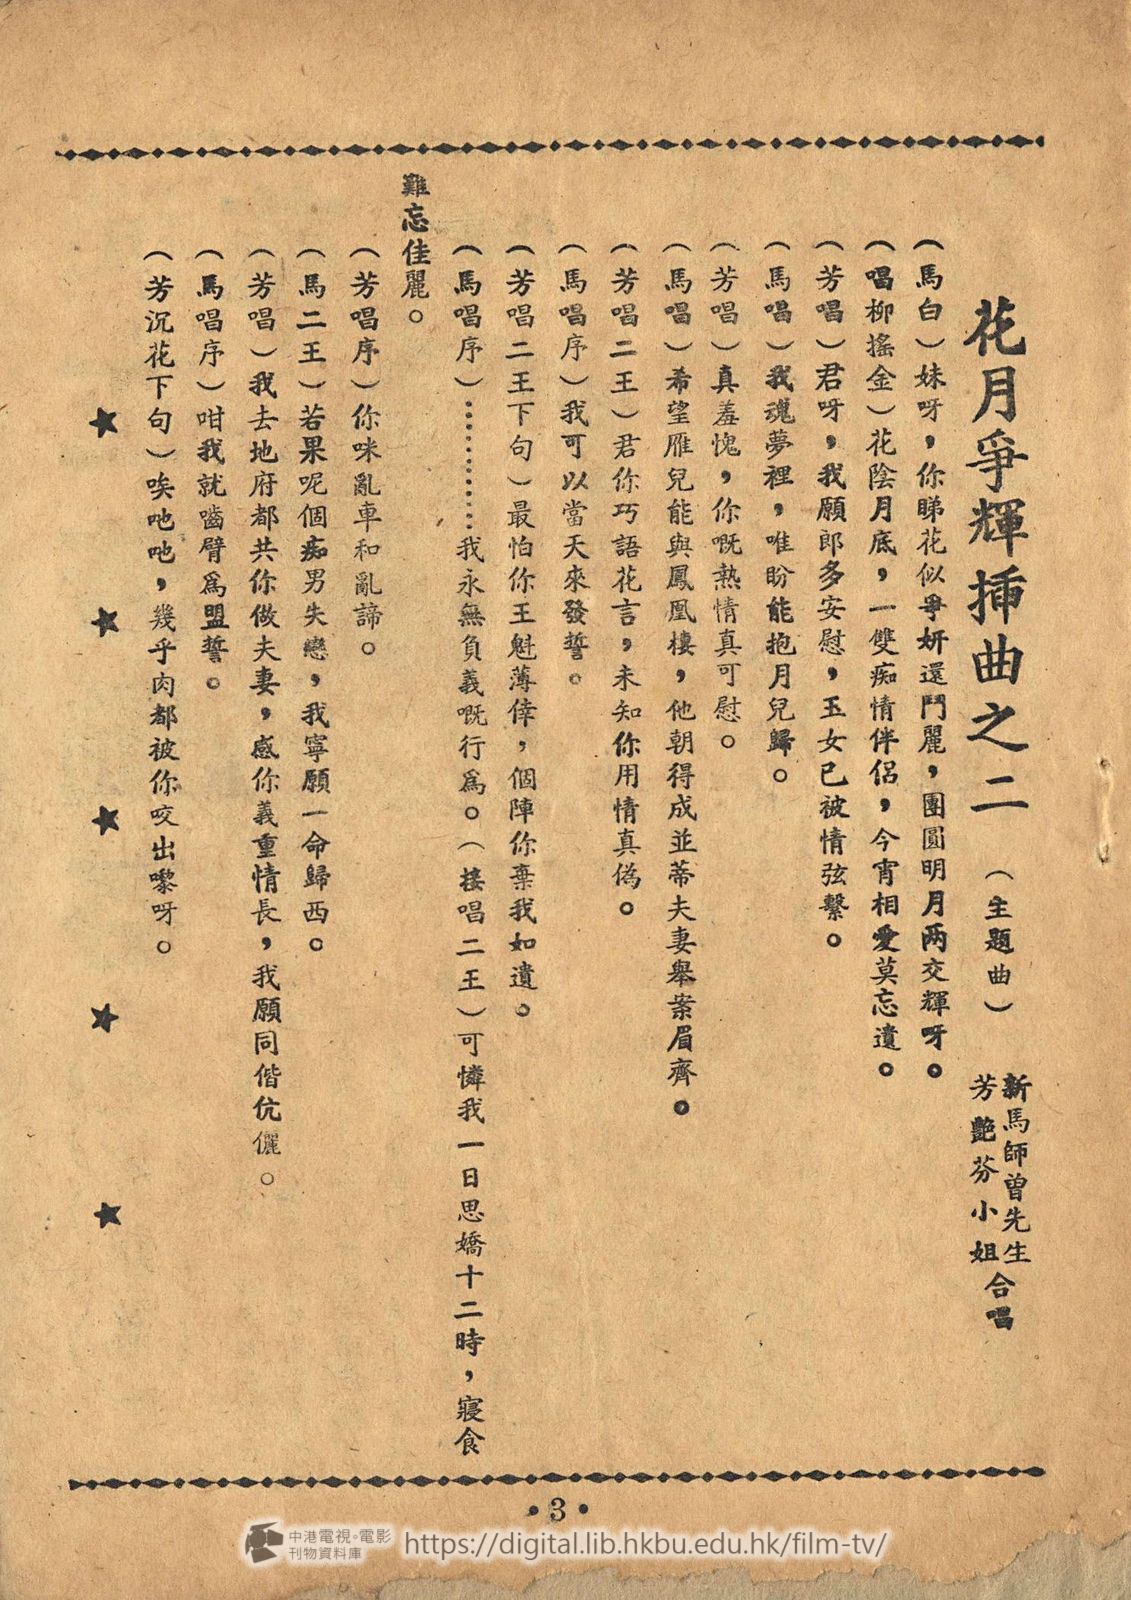 花月爭輝插曲之二 （主題曲） 新馬師曾先生 芳艷芬小姐 合唱
（馬白）妹呀，你睇花似爭妍還鬥麗，團圓明月兩交輝呀。
（唱柳搖金）花陰月底，一雙痴情伴侶，今宵相愛莫忘遺。
（芳唱）君呀，我願郎多安慰，玉女已被情弦繫。
（馬唱）我魂夢裡，唯盼能抱月兒歸。
（芳唱）真羞愧，你嘅熱情真可慰。
（馬唱）希望雁兒能與鳳凰棲，他朝得成並蒂夫妻舉案眉齊。
（芳唱二王）君你巧語花言，未知你用情真偽。
（馬唱序）我可以當天來發誓。
（芳唱二王下句）最怕你王魁薄倖，個陣你棄我如遺。
（馬唱序）…………我永無負義嘅行爲。（接唱二王）可憐我一日思嬌十二時，寢食
難忘佳麗。
（芳唱序）你咪亂車和亂諦。
（馬二王）若果呢個痴男失戀，我寧願一命歸西。
（芳唱）我去地府都共你做夫妻，感你義重情長，我願同偕伉儷。
（馬唱序）咁我就嚙臂爲盟誓。
（芳沉花下句）唉吔吔，幾乎肉都被你咬出嚟呀。
•3•
中港電視·電影
刊物資料庫
https://digital.lib.hkbu.edu.hk/film-tv/